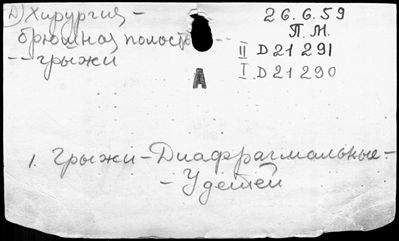 Д) Хирургия -
брюшная полость --
-- грыжи
26.6.59
П.М.
II D21291
I D21290
А
1. Грыжи - Диафрагмальные -
- У детей